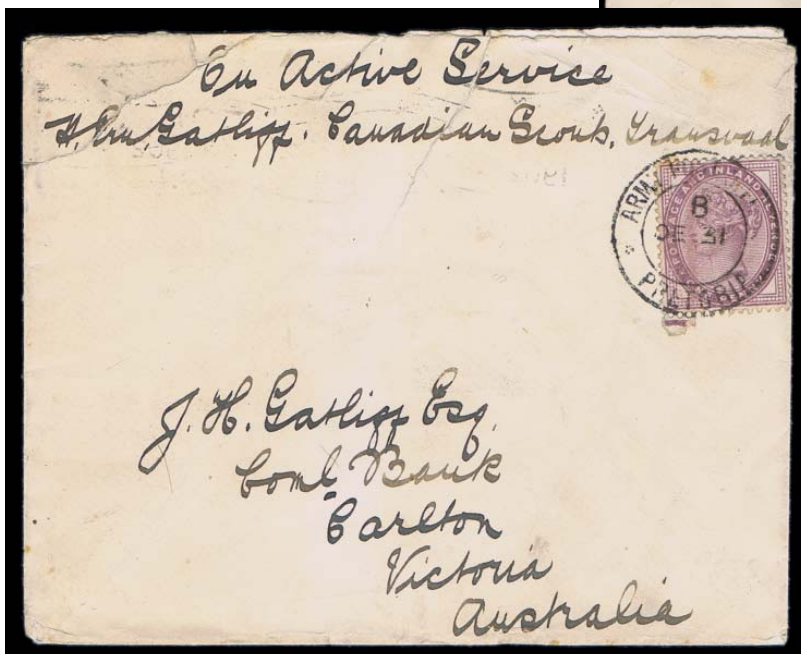 On Active Service
Gatliff. Canadian Scouts, Transvaal
ARMY
POSTAGE AND INLAND REVENUE
8
31
PRETORIA
J. H. Gatliff Esq.
Coml Bank
Carlton
Victoria
Australia